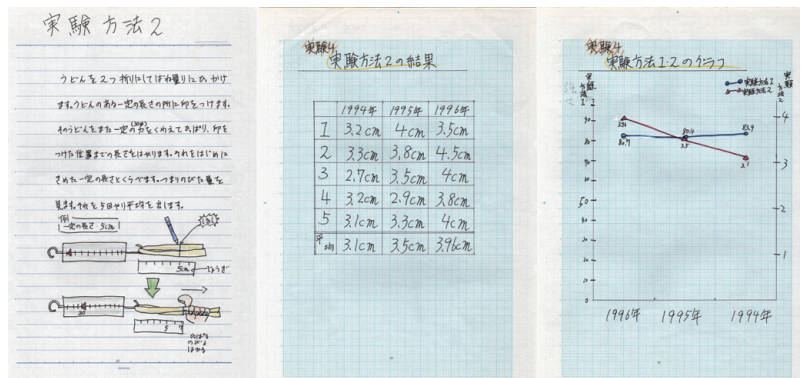 実験方法2
うどんを2つ折りにしてばね量りにひっかけ
ます。うどんのある一定の長さの所に印をつけます。
そのうどんをまた一定の力をくわえてひっぱり、印を
つけた位置までの長さをはかります。それをはじめに
きめた一定の長さとくらべます。つまりのびた量を
見ます。それを5回やり平均を出します。
例
一定の長さ 5cm
5cm
じょうぎ
5 7
のばす
はかる
実験4
実験方法2の結果
1994年 1995年 1996年
1 3.2cm 4cm 3.5cm
2 3.3cm 3.8cm 4.5cm
3 2.7cm 3.5cm 4cm
4 3.2cm 2.9cm 3.8cm
5 3.1cm 3.3cm 4cm
平均 3.1cm 3.5cm 3.96cm
実験4
実験方法1・2のグラフ
実験方法1
実験方法2
実験方法1
実験方法2
90
80
70
60
50
40
30
20
10
0
4
3
2
1
80.7
80.4
82.9
3.5
3.1
1996年 1995年 1994年